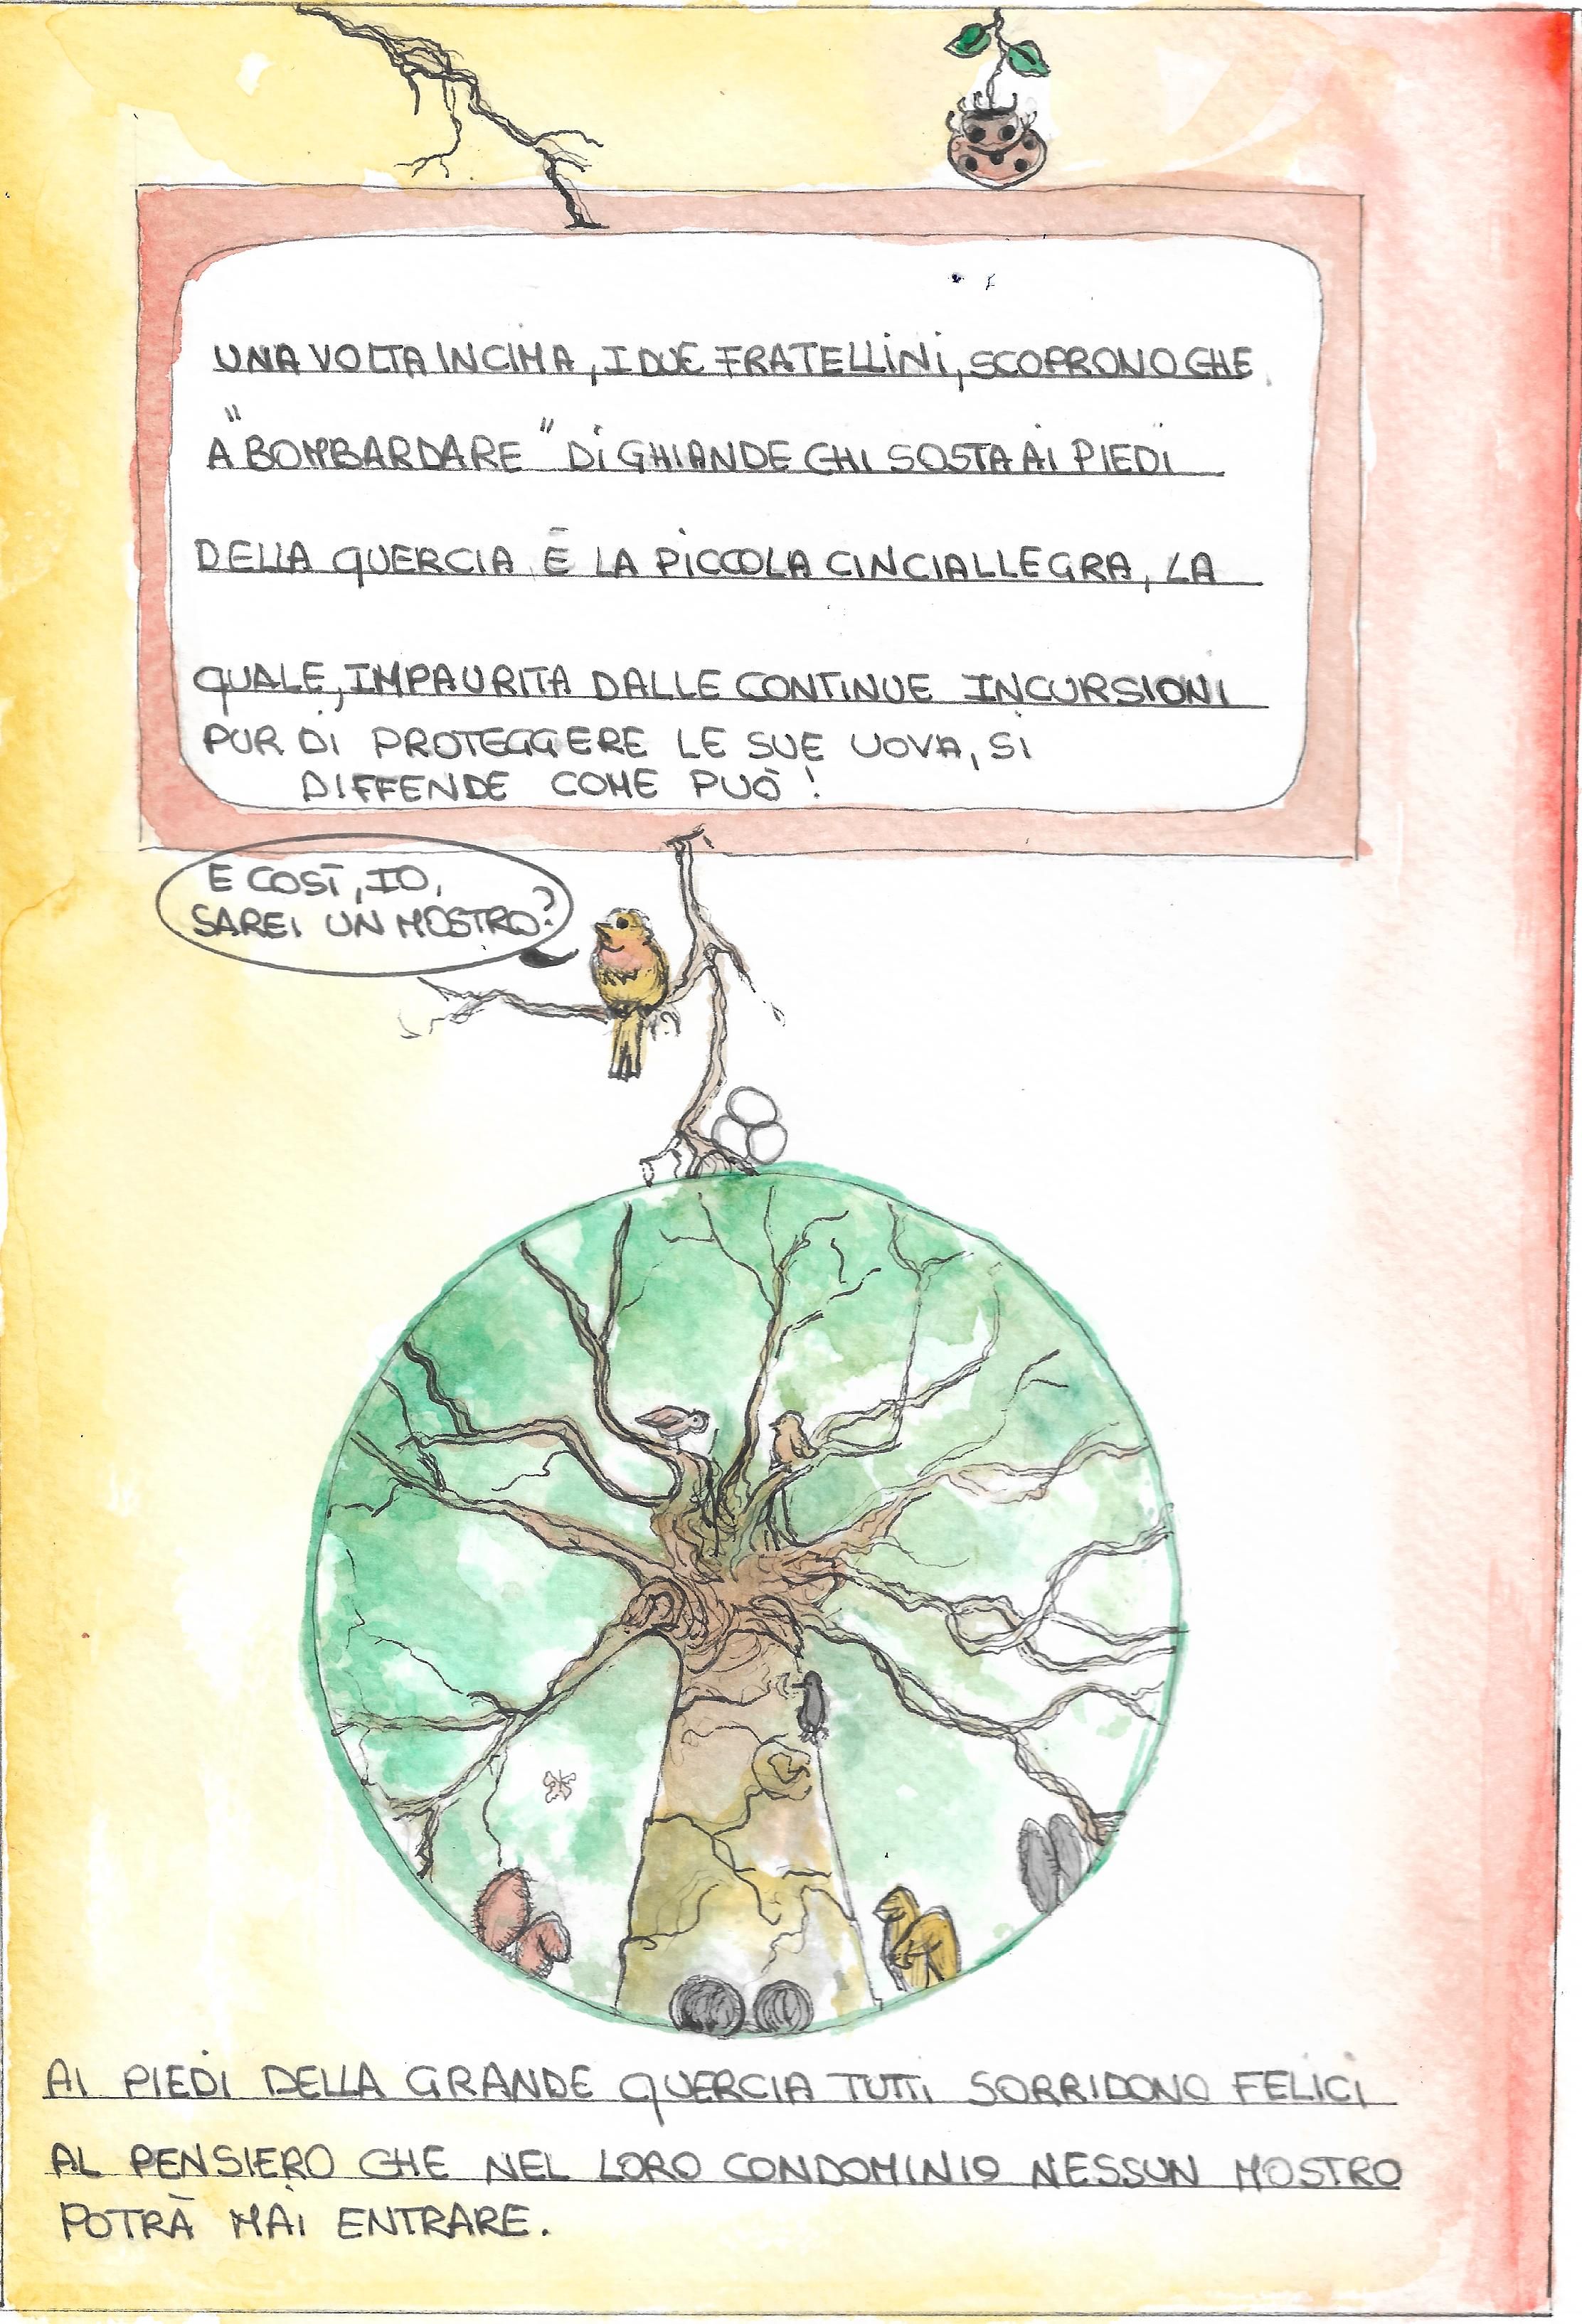 UNA VOLTA IN CIMA, I DUE FRATELLINI, SCOPRONO CHE
A "BOMBARDARE" DI GHIANDE CHI SOSTA AI PIEDI
DELLA QUERCIA È LA PICCOLA CINCIALLEGRA, LA
QUALE, IMPAURITA DALLE CONTINUE INCURSIONI
PUR DI PROTEGGERE LE SUE UOVA, SI
DIFFENDE COME PUÒ!
E COSÌ, IO,
SAREI UN MOSTRO?
AI PIEDI DELLA GRANDE QUERCIA TUTTI SORRIDONO FELICI
AL PENSIERO CHE NEL LORO CONDOMINIO NESSUN MOSTRO
POTRÀ MAI ENTRARE.